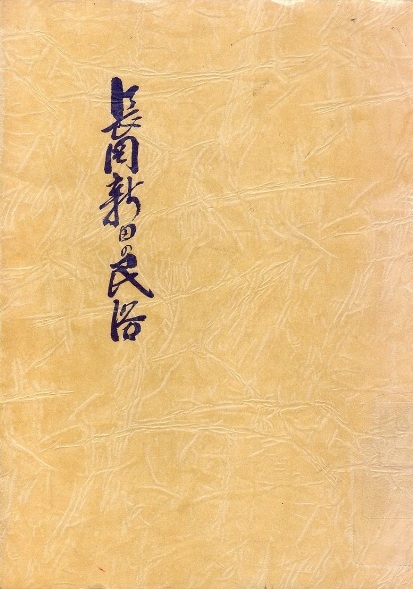 長岡新田の民俗